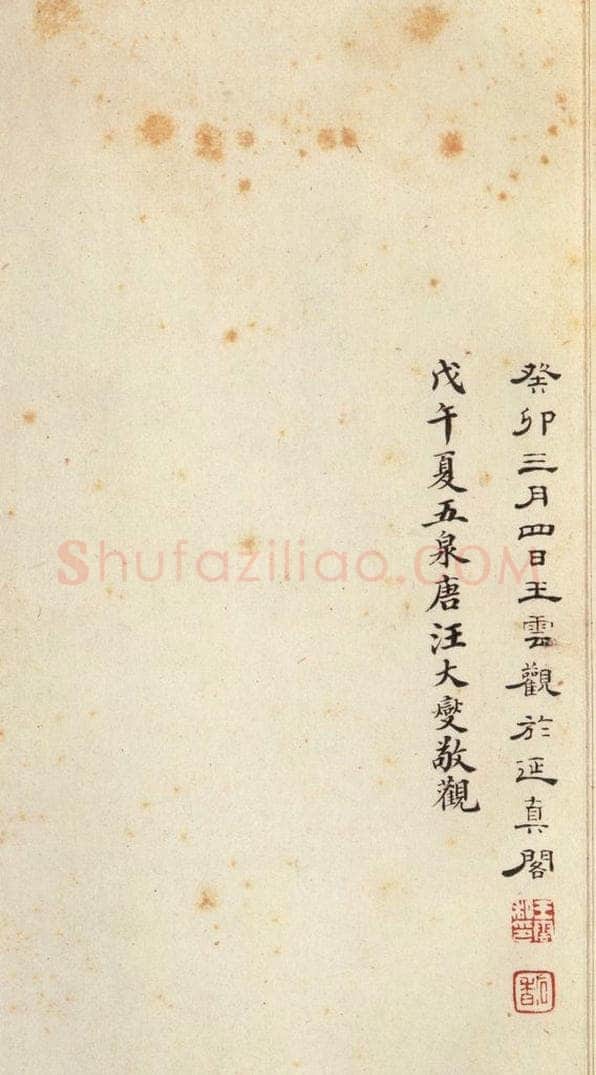 癸卯三月四日王雲觀於延真閣
戊午夏五泉唐汪大燮敬觀
Shufaziliao.COM